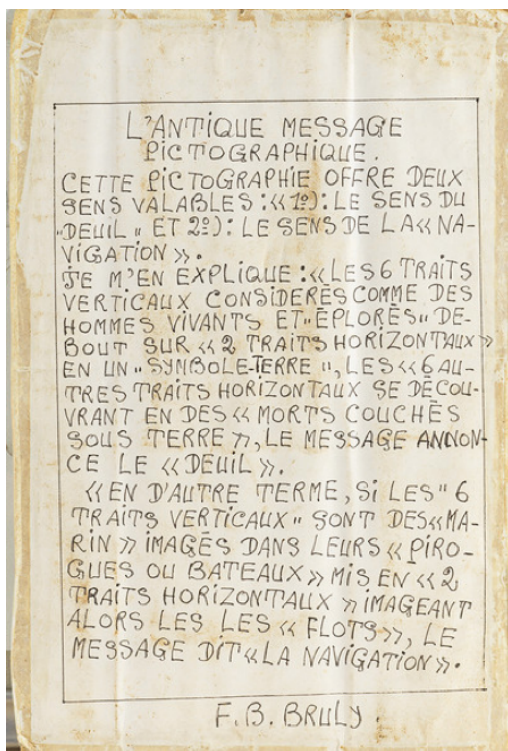 L'ANTIQUE MESSAGE
PICTOGRAPHIQUE.
CETTE PICTOGRAPHIE OFFRE DEUX
SENS VALABLES : «1º) : LE SENS DU
"DEUIL" ET 2º) : LE SENS DE LA «NA-
VIGATION».
JE M'EN EXPLIQUE : «LES 6 TRAITS
VERTICAUX CONSIDERÉS COMME DES
HOMMES VIVANTS ET "ÉPLORÉS" DE-
BOUT SUR «2 TRAITS HORIZONTAUX»
EN UN "SYNBOLE-TERRE", LES «6 AU-
TRES TRAITS HORIZONTAUX SE DÉCOU-
VRANT EN DES «MORTS COUCHÉS
SOUS TERRE», LE MESSAGE ANNON-
CE LE «DEUIL».
«EN D'AUTRE TERME, SI LES "6
TRAITS VERTICAUX" SONT DES «MA-
RIN» IMAGÉS DANS LEURS «PIRO-
GUES OU BATEAUX» MIS EN «2
TRAITS HORIZONTAUX» IMAGEANT
ALORS LES LES «FLOTS», LE
MESSAGE DIT «LA NAVIGATION».
F.B. BRULY.